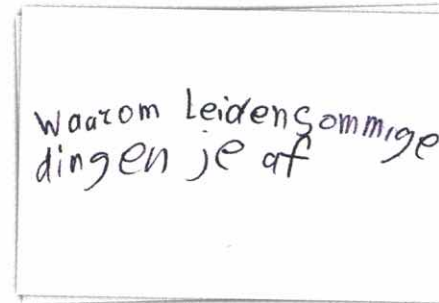 Waarom Leiden sommige
dingen je af